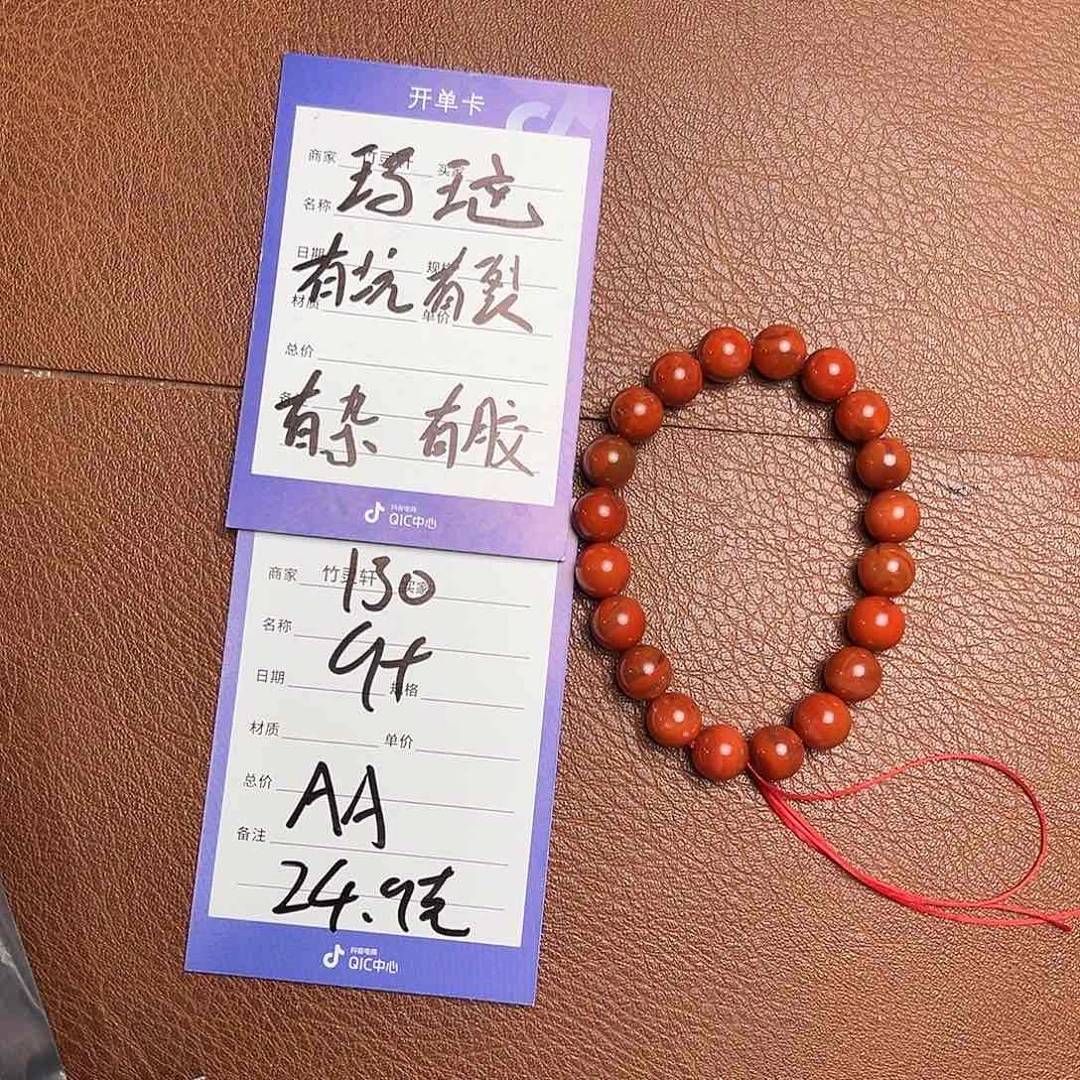 开单卡
商家 竹灵轩 买家
玛瑙
名称
日期 规格
有坑有裂
材质 单价
总价
备
有杂 有胶
抖音电商
QIC中心
130
商家 竹灵轩 买家
名称
9+
日期 规格
材质 单价
总价
AA
备注
24.9克
抖音电商
QIC中心